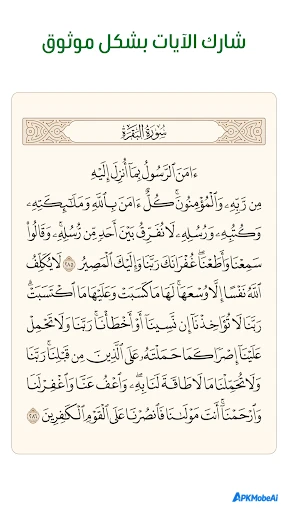 شارك الآيات بشكل موثوق
سُورَةُ البَقَرَةِ
ءَامَنَ ٱلرَّسُولُ بِمَآ أُنزِلَ إِلَيْهِ
مِن رَّبِّهِۦ وَٱلْمُؤْمِنُونَۚ كُلٌّ ءَامَنَ بِٱللَّهِ وَمَلَـٰٓئِكَتِهِۦ
وَكُتُبِهِۦ وَرُسُلِهِۦ لَا نُفَرِّقُ بَيْنَ أَحَدٍ مِّن رُّسُلِهِۦۚ وَقَالُوا۟
سَمِعْنَا وَأَطَعْنَاۖ غُفْرَانَكَ رَبَّنَا وَإِلَيْكَ ٱلْمَصِيرُ ٢٨٥ لَا يُكَلِّفُ
ٱللَّهُ نَفْسًا إِلَّا وُسْعَهَاۚ لَهَا مَا كَسَبَتْ وَعَلَيْهَا مَا ٱكْتَسَبَتْۗ
رَبَّنَا لَا تُؤَاخِذْنَآ إِن نَّسِينَآ أَوْ أَخْطَأْنَاۚ رَبَّنَا وَلَا تَحْمِلْ
عَلَيْنَآ إِصْرًا كَمَا حَمَلْتَهُۥ عَلَى ٱلَّذِينَ مِن قَبْلِنَاۚ رَبَّنَا
وَلَا تُحَمِّلْنَا مَا لَا طَاقَةَ لَنَا بِهِۦۖ وَٱعْفُ عَنَّا وَٱغْفِرْ لَنَا
وَٱرْحَمْنَآۚ أَنتَ مَوْلَىٰنَا فَٱنصُرْنَا عَلَى ٱلْقَوْمِ ٱلْكَـٰفِرِينَ ٢٨٦
APKMobeAi